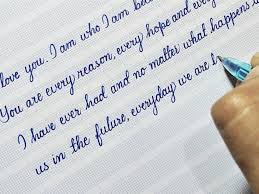 love you. I am who I am bec
You are every reason, every hope and every
I have ever had and no matter what happens
us in the future, everyday we are